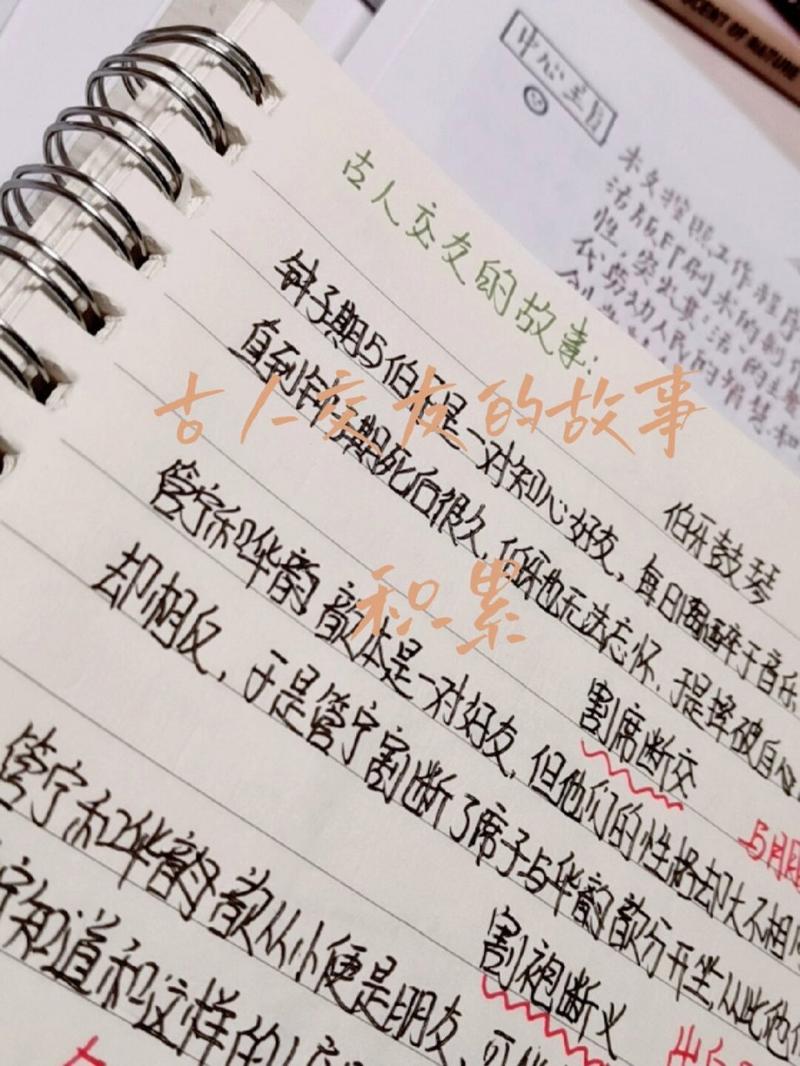 古人交友的故事:
伯牙鼓琴
钟子期与伯牙是一对知心好友,每日陶醉于音乐
直到钟子期死后很久,伯牙也无法忘怀,于是摔破自己
割席断交
管宁和华韵 歆本是一对好友,但他们的性格却大不相同
却相反,于是管宁割断了席子与华韵 歆分开坐,从此他
5月
割袍断义
管宁和华韵 歆从小便是朋友,
知道和这样的
出自
古人交友的故事
积累
中心主旨
本文按照工作程序
活版印刷术的制作
性,突出其“活”的
代劳动人民的智慧和
CENT OF NATURE